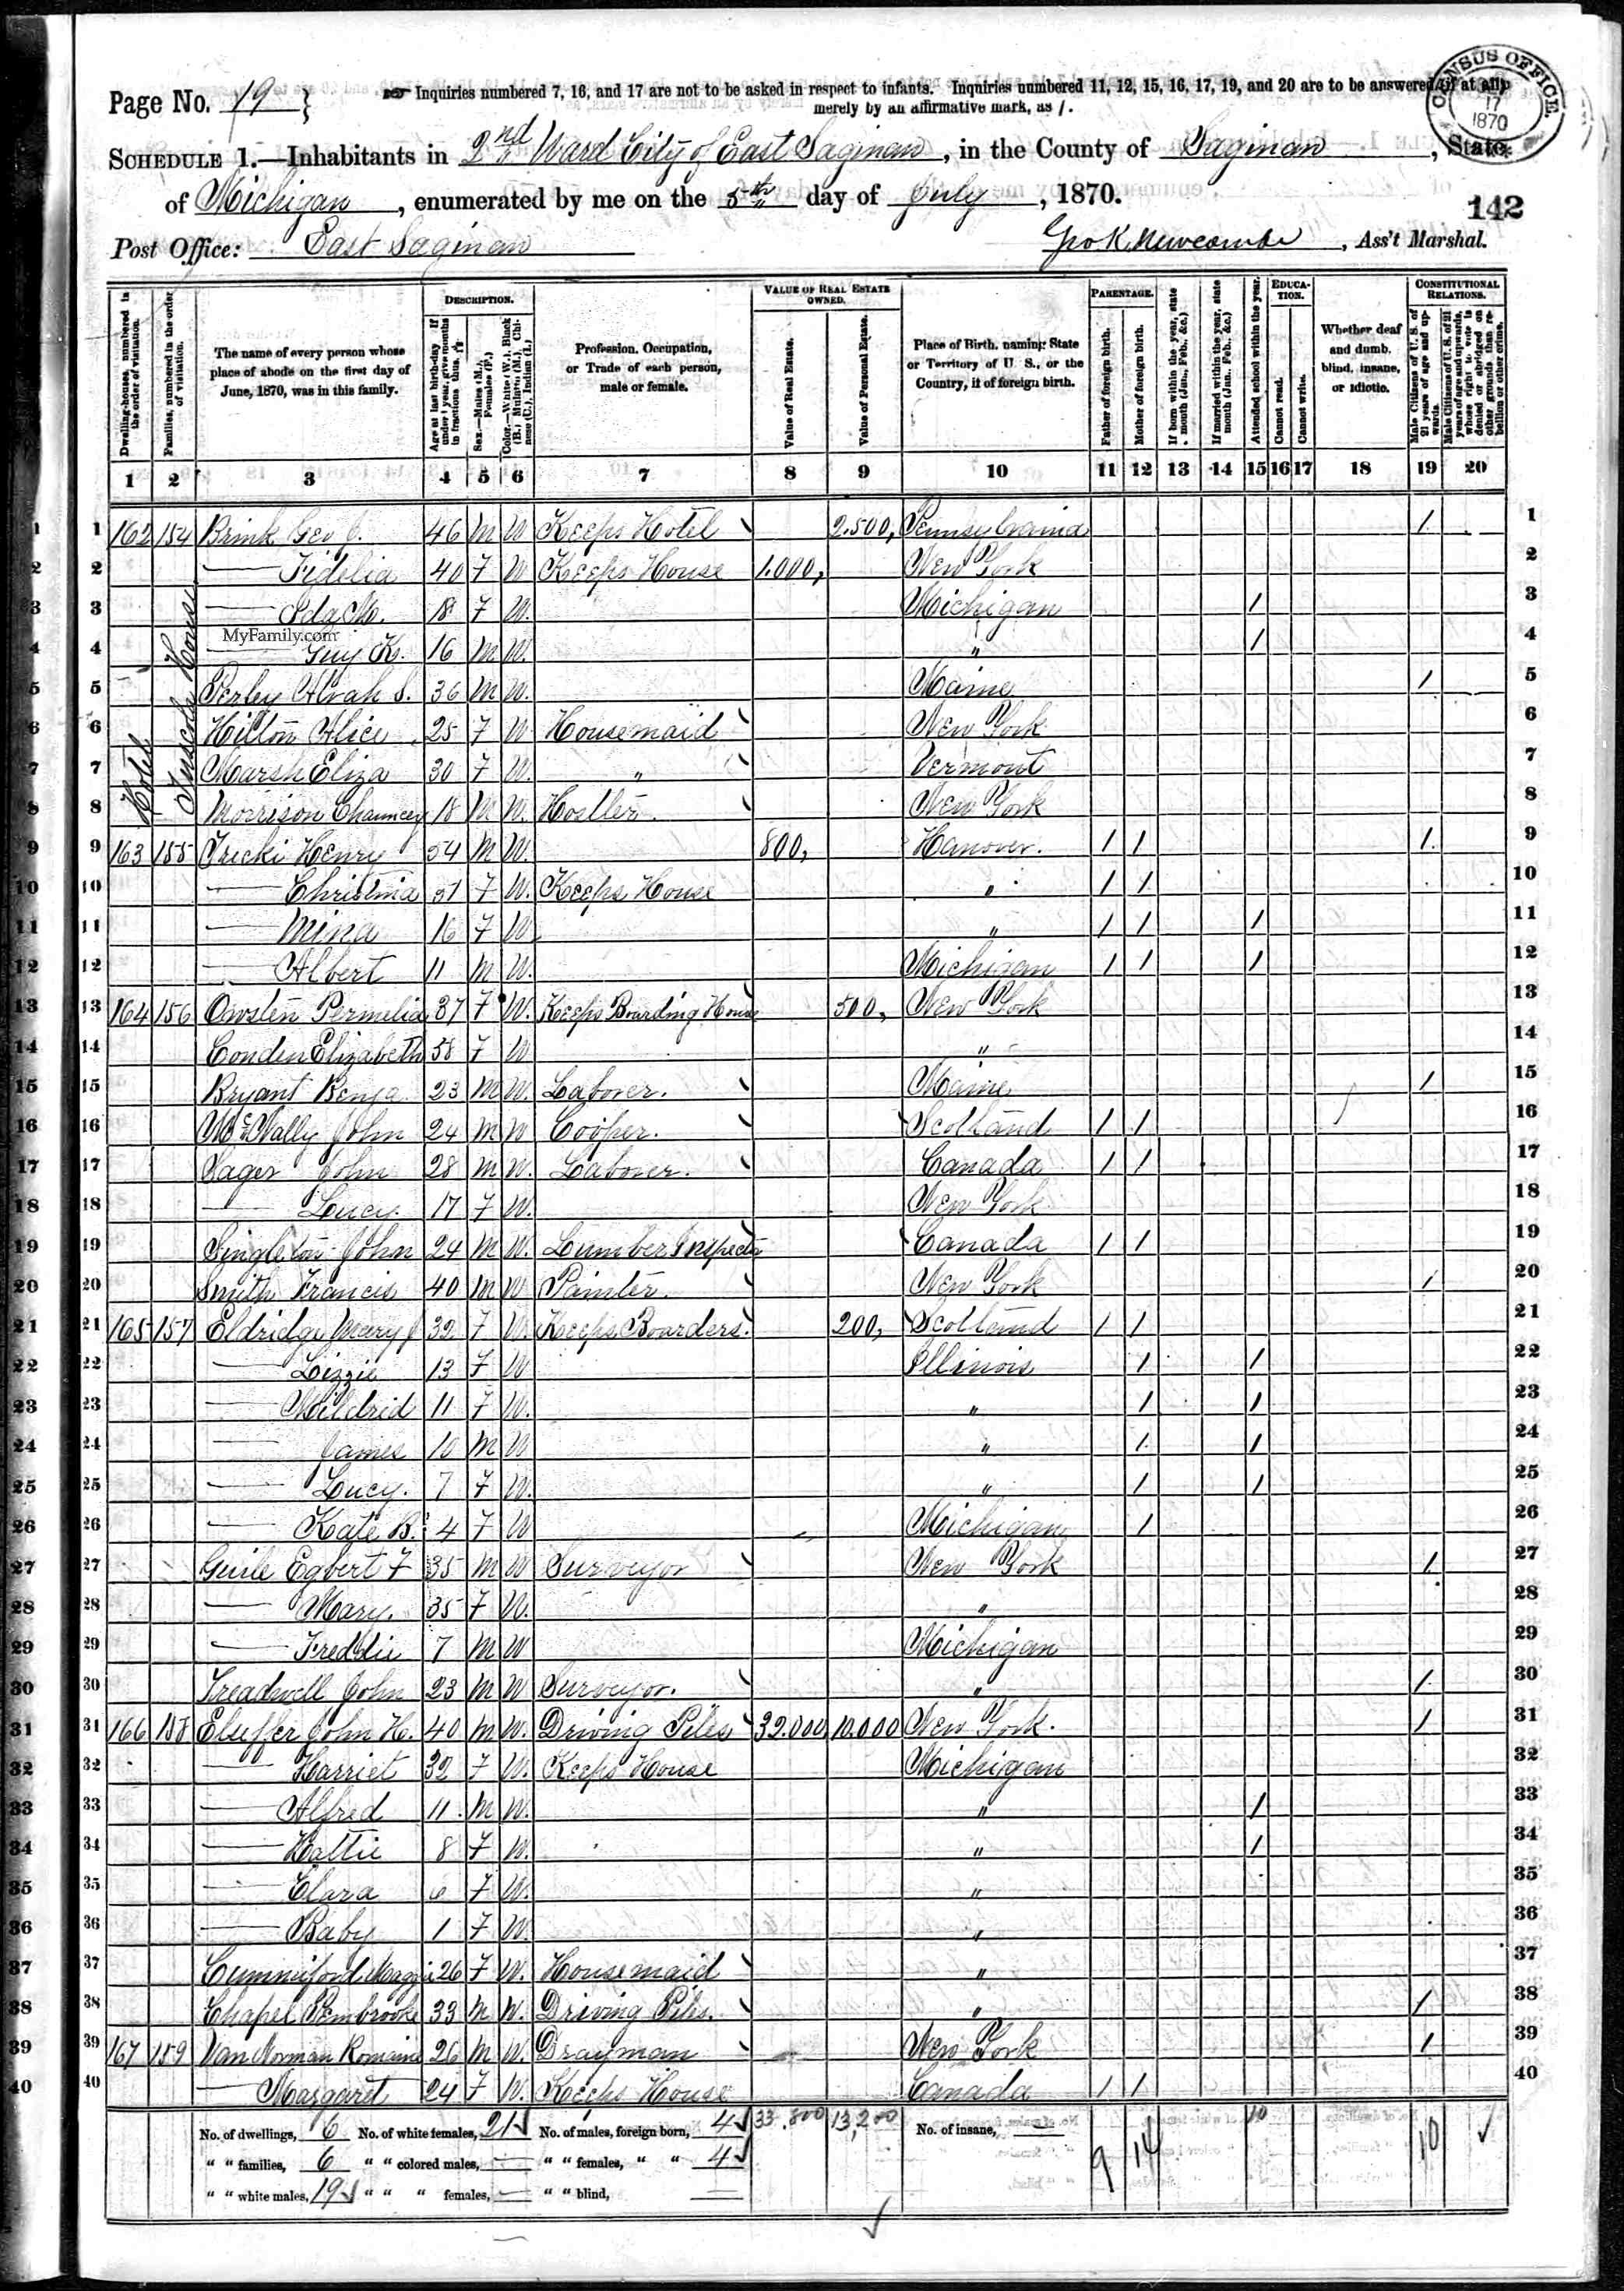 Page No. 19 } Inquiries numbered 7, 16, and 17 are not to be asked in respect to infants. Inquiries numbered 11, 12, 15, 16, 17, 19, and 20 are to be answered (if at all)
merely by an affirmative mark, as /.
CENSUS OFFICE. 17 1870
SCHEDULE 1.—Inhabitants in 2nd Ward City of East Saginaw, in the County of Saginaw, State
of Michigan, enumerated by me on the 5th day of July, 1870.
142
Post Office: East Saginaw Geo K Newcombe, Ass't Marshal.
Dwelling-houses, numbered in the order of visitation.
Families, numbered in the order of visitation.
The name of every person whose place of abode on the first day of June, 1870, was in this family.
DESCRIPTION.
Age at last birth-day. If under 1 year, give months in fractions, thus,
Sex.—Males (M.), Females (F.)
Color.—White (W.), Black (B.), Mulatto (M.), Chinese (C.), Indian (I.)
Profession, Occupation, or Trade of each person, male or female.
VALUE OF REAL ESTATE OWNED.
Value of Real Estate.
Value of Personal Estate.
Place of Birth, naming State or Territory of U. S., or the Country, if of foreign birth.
PARENTAGE.
Father of foreign birth.
Mother of foreign birth.
If born within the year, state month (Jan., Feb., &c.)
If married within the year, state month (Jan., Feb., &c.)
Attended school within the year.
EDUCATION.
Cannot read.
Cannot write.
Whether deaf and dumb, blind, insane, or idiotic.
CONSTITUTIONAL RELATIONS.
Male Citizens of U. S. of 21 years of age and upwards.
Male Citizens of U. S. of 21 years of age and upwards, whose right to vote is denied or abridged on other grounds than rebellion or other crime.
1 2 3 4 5 6 7 8 9 10 11 12 13 14 15 16 17 18 19 20
1 1 162 154 Brink Geo J. 46 M W Keeps Hotel 2.500, Pennsylvania / 1
2 2 — Fidelia 40 F W Keeps House 1.000, New York 2
3 3 — Ida M. 18 F W. Michigan / 3
MyFamily.com
4 4 — Guy K. 16 M W. " / 4
5 5 Perley Alvah S. 36 M W. Maine / 5
6 6 Hilton Alice 25 F W Housemaid New York 6
7 7 Marsh Eliza 30 F W. " Vermont 7
Hotel Tuscola House
8 8 Morrison Chauncey 18 M W. Hostler. New York 8
9 9 163 155 Henry 54 M W. 800, Hanover. / / / 9
10 10 — Christina 51 F W. Keeps House " / / 10
11 11 — Mina 16 F W " / / / 11
12 12 — Albert 11 M W. Michigan / / / 12
13 13 164 156 Owsten Permelia 37 F W. Keeps Boarding House 500, New York 13
14 14 Conden Elizabeth 58 F W " 14
15 15 Bryant Benja 23 M W. Laborer. Maine / 15
16 16 McNally John 24 M W Cooper. Scotland / / 16
17 17 Sager John 28 M W. Laborer. Canada / / 17
18 18 — Lucy. 17 F W. New York 18
19 19 Singleton John 24 M W. Lumber Inspector Canada / / 19
20 20 Smith Francis 40 M W Painter. New York / 20
21 21 165 157 Eldridge Mary J 32 F W. Keeps Boarders. 200, Scotland / / 21
22 22 — Lizzie 13 F W Illinois / / 22
23 23 — Mildrid 11 F W. " / / 23
24 24 — James 10 M W " / / 24
25 25 — Lucy. 7 F W. " / / 25
26 26 — Kate B. 4 F W Michigan / 26
27 27 Guile Egbert F 35 M W Surveyor New York / 27
28 28 — Mary. 35 F W. " 28
29 29 — Freddie 7 M W Michigan 29
30 30 Treadwell John 23 M W Surveyor. " / 30
31 31 166 158 John H. 40 M W. Driving Piles 32.000 10.000 New York. / 31
32 32 — Harriet 32 F W. Keeps House Michigan 32
33 33 — Alfred 11. M W. " / 33
34 34 — Hattie 8 F W. " / 34
35 35 — Clara 6 F W. " 35
36 36 — Baby 1 F W. " 36
37 37 Maggie 26 F W. Housemaid " 37
38 38 Chapel Pembrooke 33 M W. Driving Piles. " / 38
39 39 167 159 Van Norman Romaine 26 M W. Drayman New York / 39
40 40 — Margaret 24 F W. Keeps House Canada / / 40
No. of dwellings, 6 No. of white females, 21 No. of males, foreign born, 4 33,800 13,200 No. of insane, — 9 14 10 10
" " families, 6 " " colored males, — " " females, " " 4
" " white males, 19 " " " females, — " " blind, —